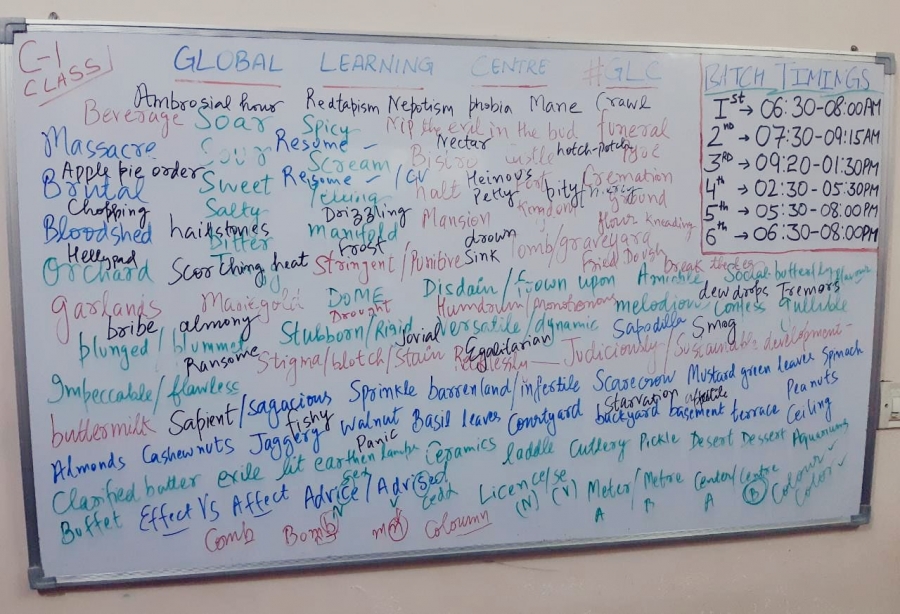 C-1
CLASS
GLOBAL LEARNING CENTRE #GLC
BATCH TIMINGS
1st → 06:30-08:00AM
2ND → 07:30-09:15AM
3RD → 09:20-01:30PM
4th → 02:30-05:30PM
5th → 05:30-08:00PM
6th → 06:30-08:00PM
Ambrosial hour Redtapism Nepotism phobia Mane Crawl
Beverage Soar Spicy Nip the evil in the bud funeral
Massacre Sour Resume - Nectar hotch-potch
Apple pie order Scream Bistro
Brutal Sweet Resume - /CV halt Heinous Cremation
Chopping Salty Yelling Petty ground
Bloodshed hailstones Drizzling Mansion Kingdom flour kneading
Bitter manifold drown tomb/graveyard
Hellypad Frost Sink Fried Dough
Orchard Scorching heat Stringent/Punitive Disdain/frown upon break the ice Social butterfly
Garlands Mariegold DOME Humdrum/monotonous melodious dew drops Tremors
bribe almony Drought Confess Gullible
plunged/plummet Stubborn/Rigid Jovial Versatile/dynamic Sapadilla Smog
Ransome Stigma/blotch/Stain Egalitarian Judiciously/Sustainable development-
Impeccable/flawless Sprinkle barren land/infertile Scarecrow Mustard green leaves Spinach
buttermilk Sapient/sagacious Starvation Peanuts
fishy Walnut Basil leaves Courtyard backyard basement terrace Ceiling
Almonds Cashewnuts Jaggery Panic
Clarified butter exile lit earthen lamps Ceramics laddle Cutlery Pickle Desert Dessert Aquariums
Buffet Effect Vs Affect Advice/Advised Licence/se Meter/Metre Center/Centre Colour ✓
N V (N) (V) A B A B Color ✓
Comb Bomb Coloumn